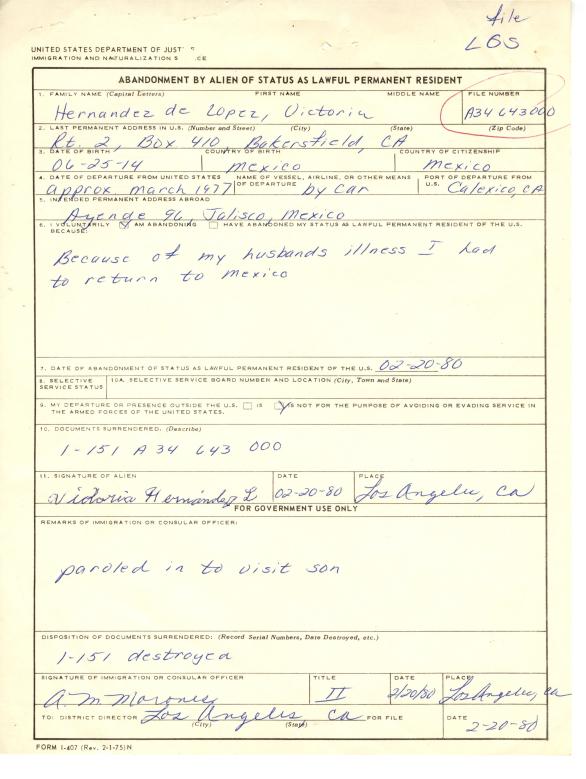 file
LOS
UNITED STATES DEPARTMENT OF JUST
IMMIGRATION AND NATURALIZATION S CE
ABANDONMENT BY ALIEN OF STATUS AS LAWFUL PERMANENT RESIDENT
1. FAMILY NAME (Capital Letters) FIRST NAME MIDDLE NAME FILE NUMBER
Hernandez de Lopez, Victoria A34 643000
2. LAST PERMANENT ADDRESS IN U.S. (Number and Street) (City) (State) (Zip Code)
Rt. 2, Box 410, Bakersfield, CA
3. DATE OF BIRTH COUNTRY OF BIRTH COUNTRY OF CITIZENSHIP
06-25-14 Mexico Mexico
4. DATE OF DEPARTURE FROM UNITED STATES NAME OF VESSEL, AIRLINE, OR OTHER MEANS OF DEPARTURE PORT OF DEPARTURE FROM U.S.
approx. march 1977 by car Calexico, CA
5. INTENDED PERMANENT ADDRESS ABROAD
Ayende 96, Jalisco, Mexico
6. I VOLUNTARILY AM ABANDONING HAVE ABANDONED MY STATUS AS LAWFUL PERMANENT RESIDENT OF THE U.S.
BECAUSE:
Because of my husbands illness I had
to return to Mexico
7. DATE OF ABANDONMENT OF STATUS AS LAWFUL PERMANENT RESIDENT OF THE U.S. 02-20-80
8. SELECTIVE SERVICE STATUS 10A. SELECTIVE SERVICE BOARD NUMBER AND LOCATION (City, Town and State)
9. MY DEPARTURE OR PRESENCE OUTSIDE THE U.S. IS IS NOT FOR THE PURPOSE OF AVOIDING OR EVADING SERVICE IN
THE ARMED FORCES OF THE UNITED STATES.
10. DOCUMENTS SURRENDERED: (Describe)
1-151 A 34 643 000
11. SIGNATURE OF ALIEN DATE PLACE
Victoria Hernández L 02-20-80 Los Angeles, Ca
FOR GOVERNMENT USE ONLY
REMARKS OF IMMIGRATION OR CONSULAR OFFICER:
paroled in to visit son
DISPOSITION OF DOCUMENTS SURRENDERED: (Record Serial Numbers, Date Destroyed, etc.)
1-151 destroyed
SIGNATURE OF IMMIGRATION OR CONSULAR OFFICER TITLE DATE PLACE
A. M. II 2/20/80 Los Angeles, ca
TO: DISTRICT DIRECTOR Los Angeles Ca FOR FILE DATE
(City) (State) 2-20-80
FORM I-407 (Rev. 2-1-75)N